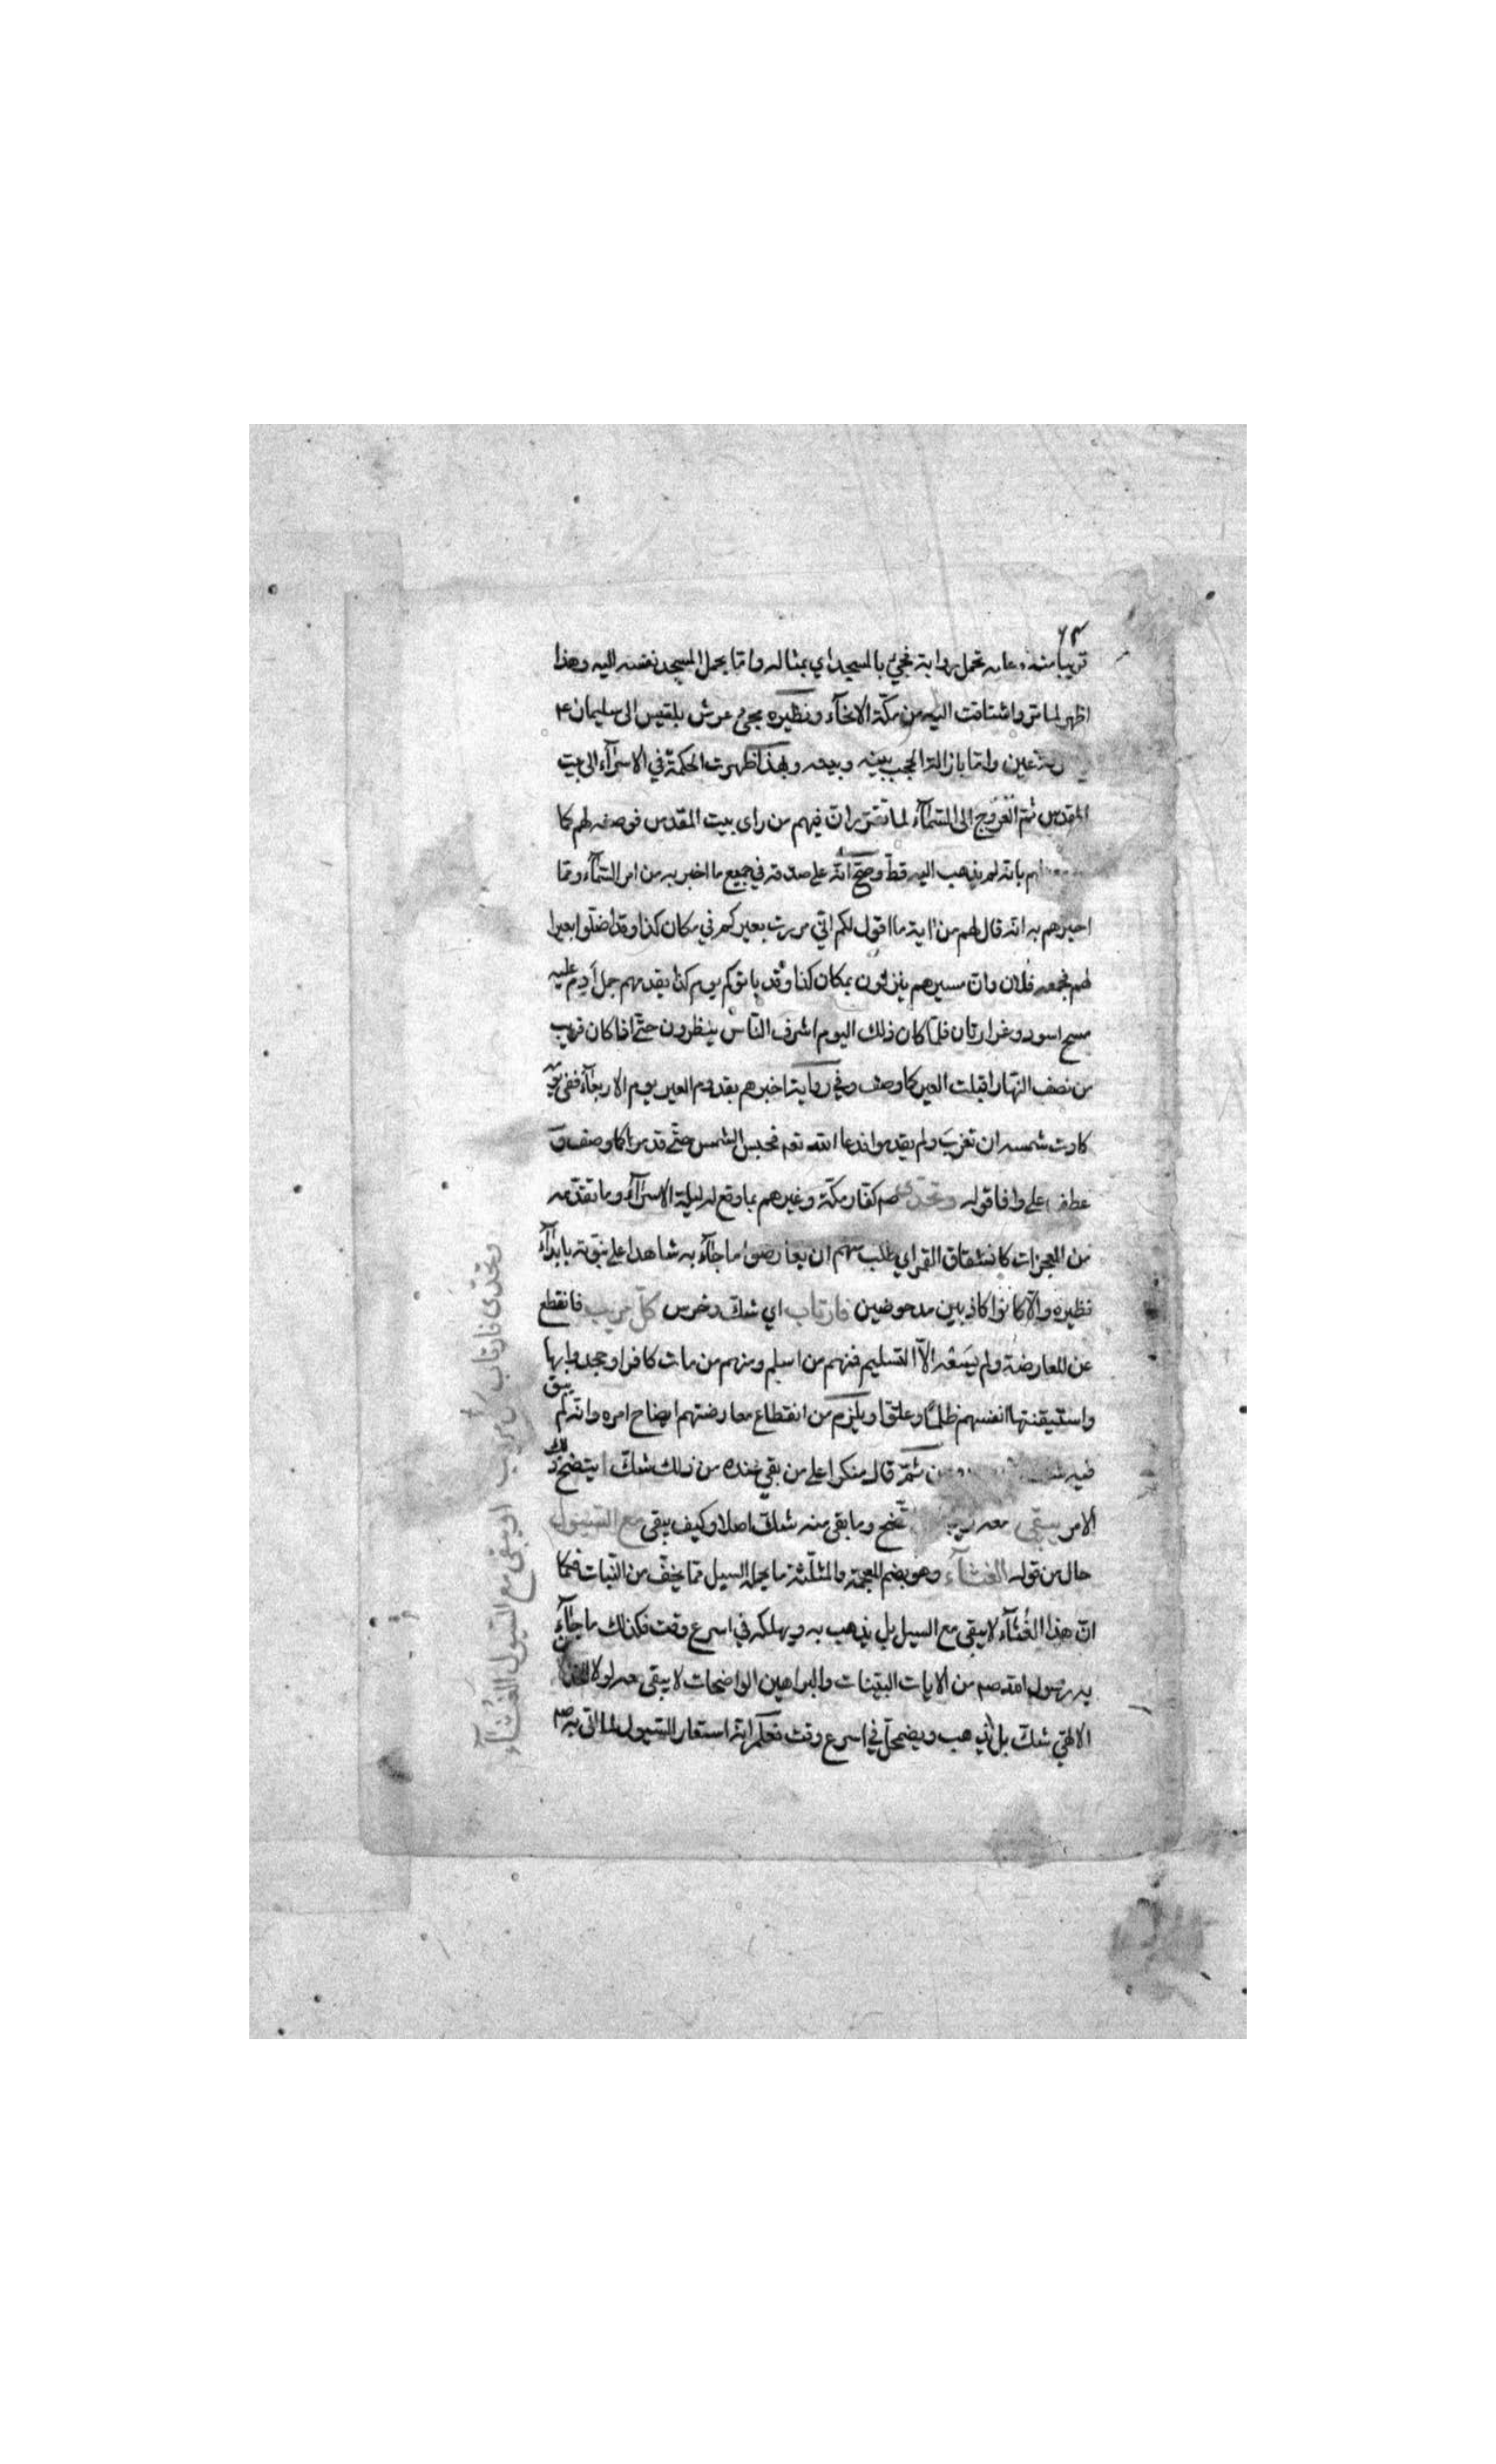 ٦٣
قريبا منه وعليه تحمل رواية فجيء بالمسجد اي بمثاله واما بحمل المسجد نفسه اليه وهذا
اظهر لما مر واشتاقت اليه من مكة الانحآء ونظيره مجئ عرش بلقيس الى سليمان ع
عين واما بازالة الحجب بينه وبينه وبهذا ظهرت الحكمة في الاسرآء الى بيت
المقدس ثم العروج الى السمآء لما تقرر ان فيهم من راى بيت المقدس فوصفه لهم كما
بانه لم يذهب اليه قط وصح انه على صدقه في جميع ما اخبر به من امر السمآء ومما
اخبرهم به انه قال لهم من اية ما اقول لكم اني مررت بعيركم في مكان كذا وقد اضلوا بعيرا
لهم فجمعه فلان وان مسيرهم ينزلون بمكان كذا وقد ياتوكم يوم كذا يقدمهم جمل آدم عليه
مسح اسود وغرارتان فلما كان ذلك اليوم اشرف الناس ينظرون حتى اذا كان قريب
من نصف النهار اقبلت العير كما وصف وفي رواية اخبرهم بقدوم العير يوم الاربعآء ففي يومه
كادت شمسه ان تغرب ولم يقدموا فدعا الله تعه فحبس الشمس حتى قدموا كما وصف و
عطف على وافا قوله وتحدى صم كفار مكة وغيرهم بما وقع له ليلة الاسرآء وما تقدمه
من المعجزات كانشقاق القمر اي طلب منهم ان يعارضوا ما جآء به شاهدا على نبوته بابدآء
نظيره والا كانوا كاذبين مدحوضين فارتاب اي شك وخرس كل مريب فانقطع
عن المعارضة ولم يسعه الا التسليم فمنهم من اسلم ومنهم من مات كافرا وجحدوا بها
واستيقنتها انفسهم ظلما وعلوا ويلزم من انقطاع معارضتهم ايضاح امره وانه لم يبق
فيه ثم قال منكرا على من بقي عنده من ذلك شك ا يتضح ذلك
الامر يبقى معه وما بقي منه شك اصلا وكيف يبقى مع السيول
حال من قوله الغثآء وهو بضم المعجمة والمثلثة ما يحمل السيل مما يخف من النبات فكما
ان هذا الغثآء لا يبقى مع السيل بل يذهب به ويهلكه في اسرع وقت فكذلك ما جآء
به رسول الله صم من الايات البينات والبراهين الواضحات لا يبقى معه لولا
الالهي شك بل يذهب ويضمحل في اسرع وقت تعلم انه استعار السيول لما اتى به صم
وتحدى فارتاب كل مريب او يبقى مع السيول الغثآء